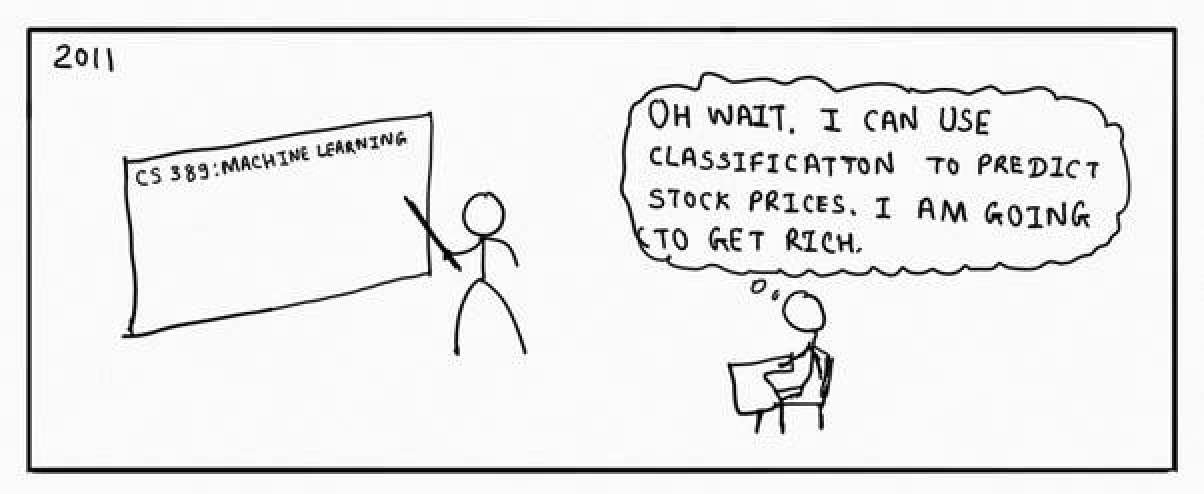 2011
CS 389: MACHINE LEARNING
OH WAIT. I CAN USE
CLASSIFICATION TO PREDICT
STOCK PRICES. I AM GOING
TO GET RICH.